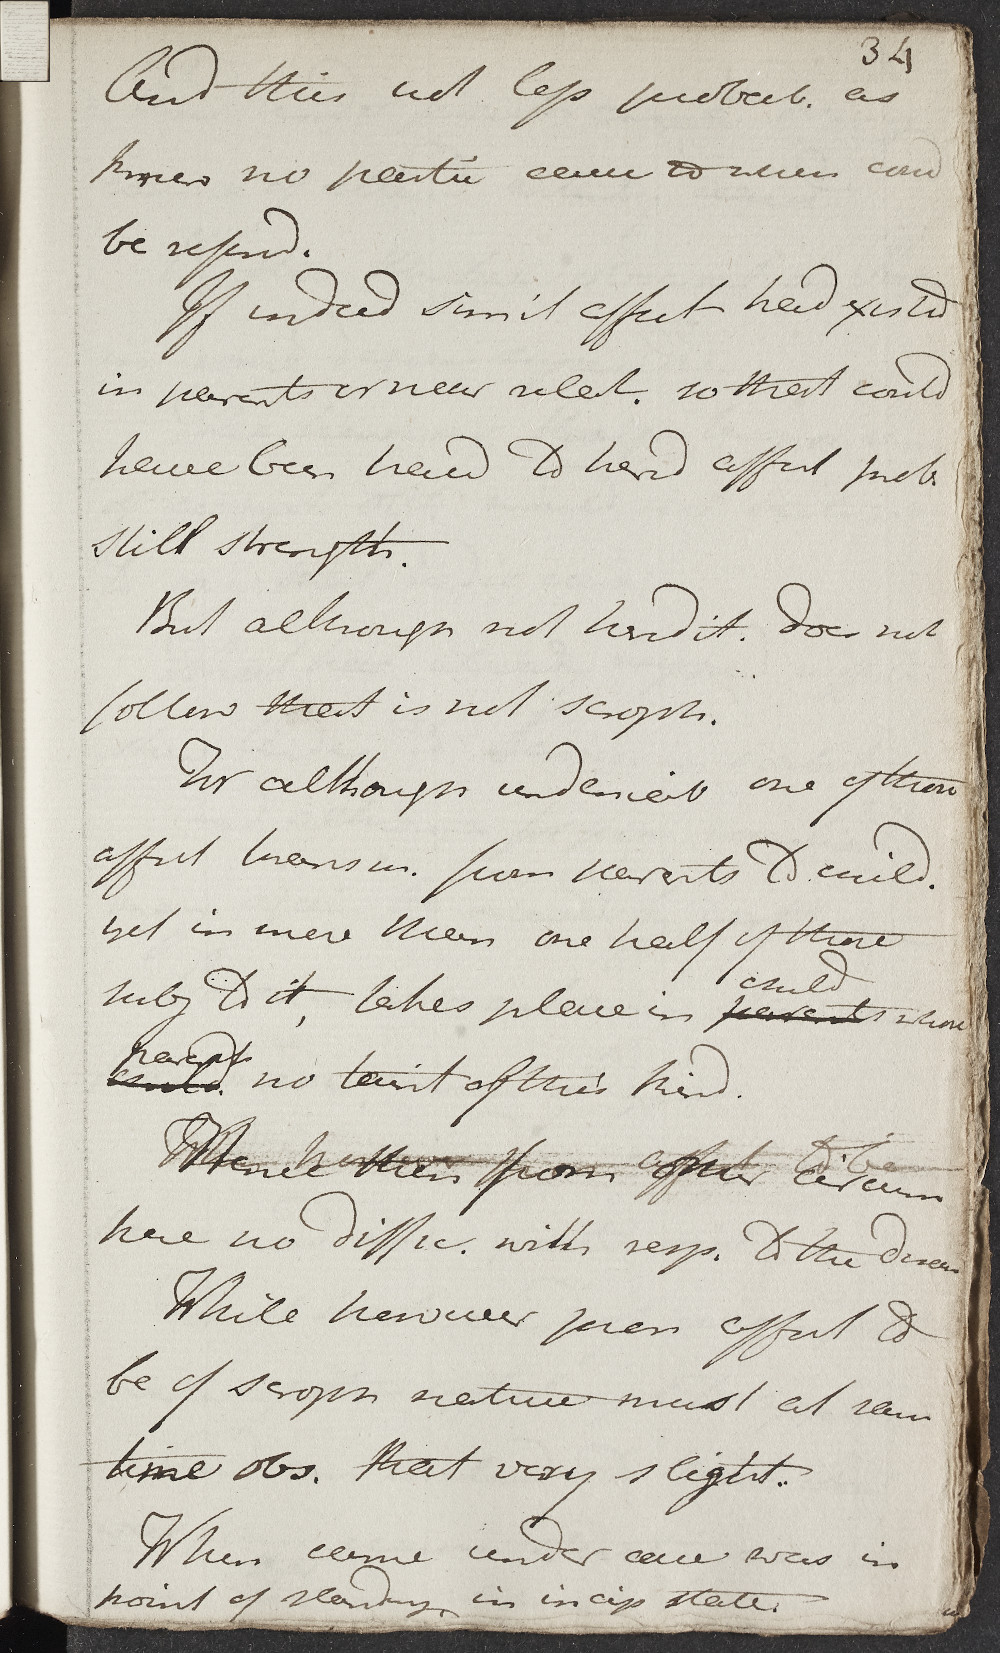 34
And this not less probab. as
knew no partic cause to which coud
be referrd.
If indeed simil affect had existd
in parents or near relat. so that could
have been heard to herd affect prob
still strength.
But although not herdit. does not
follow that is not scroph.
For although undeniab one of those
affect transm. from parents to child.
yet in more than one half of those
subj to it, takes place in child parents whose
parents child. no taint of this kind.
Whence then from other circum
have no diffic. with resp. to the disease
While however from affect to
be of scroph nature must at same
time obs. that very slight.
When came under care was in
point of standing in incip state.